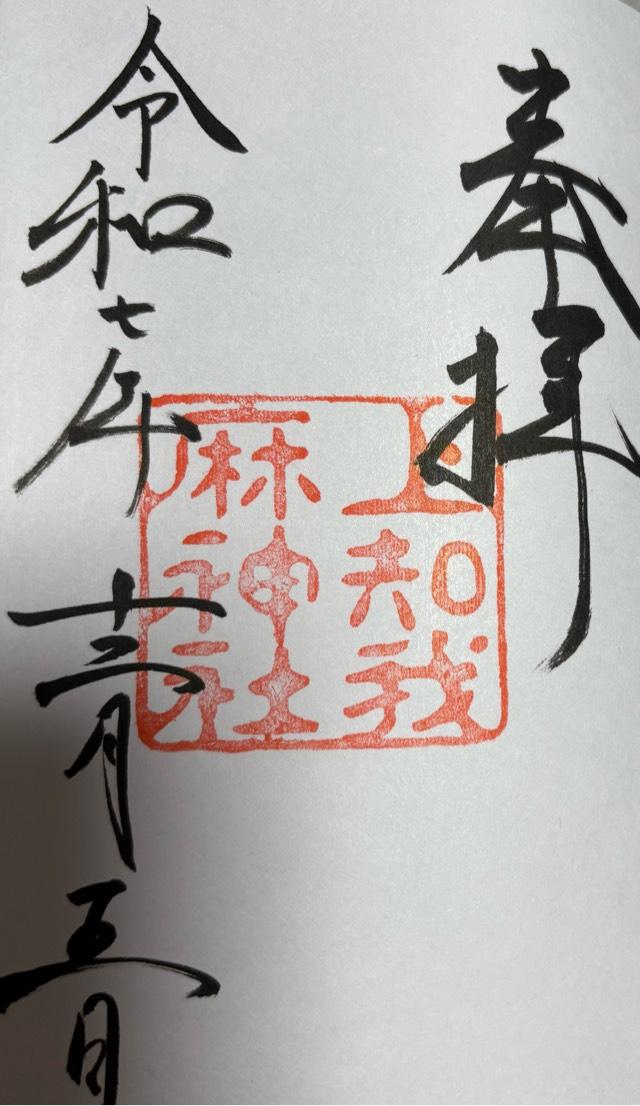 奉拝
上知我
麻神社
令和七年 十二月 五日